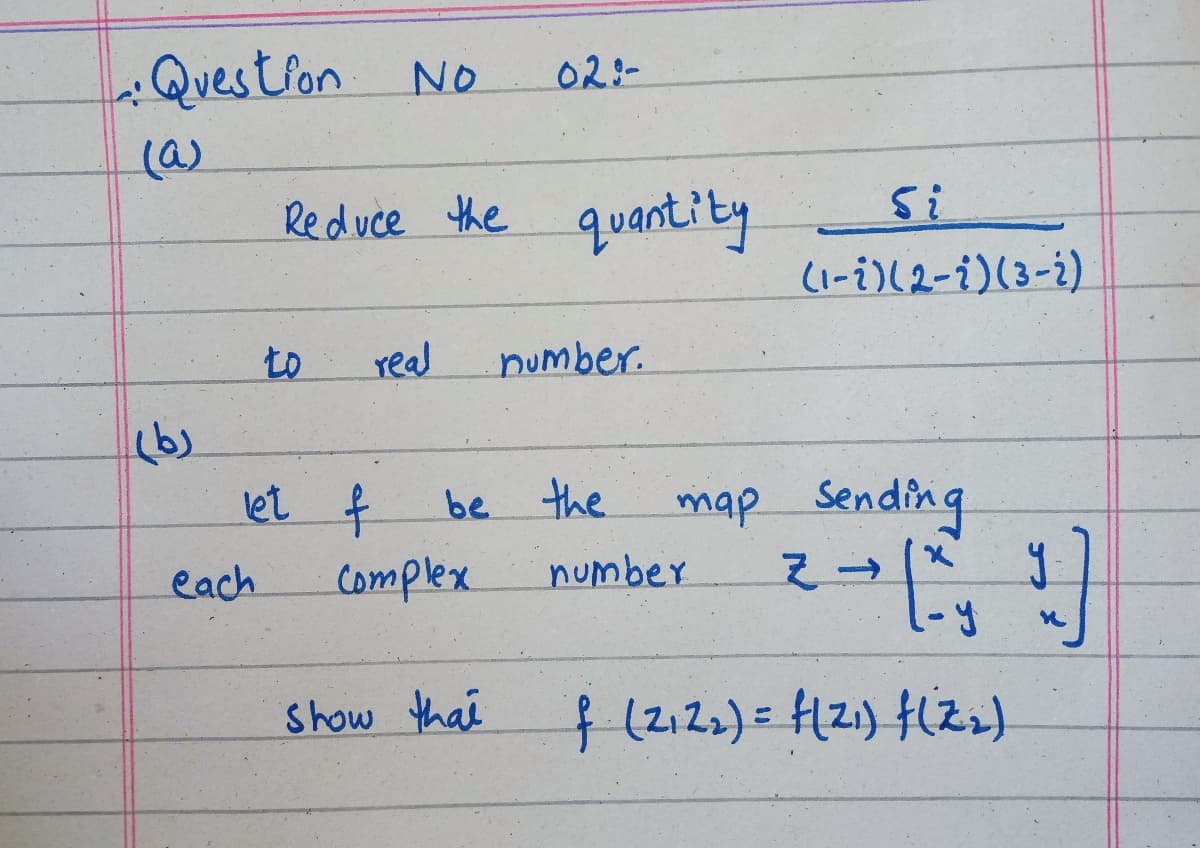 :Question No 02:-
(a)
Reduce the quantity 5i / (1-i)(2-i)(3-i)
to real number.
(b)
let f be the map sending
each complex number z → [x y
-y x]
show that f (z₁z₂) = f(z₁) f(z₂)